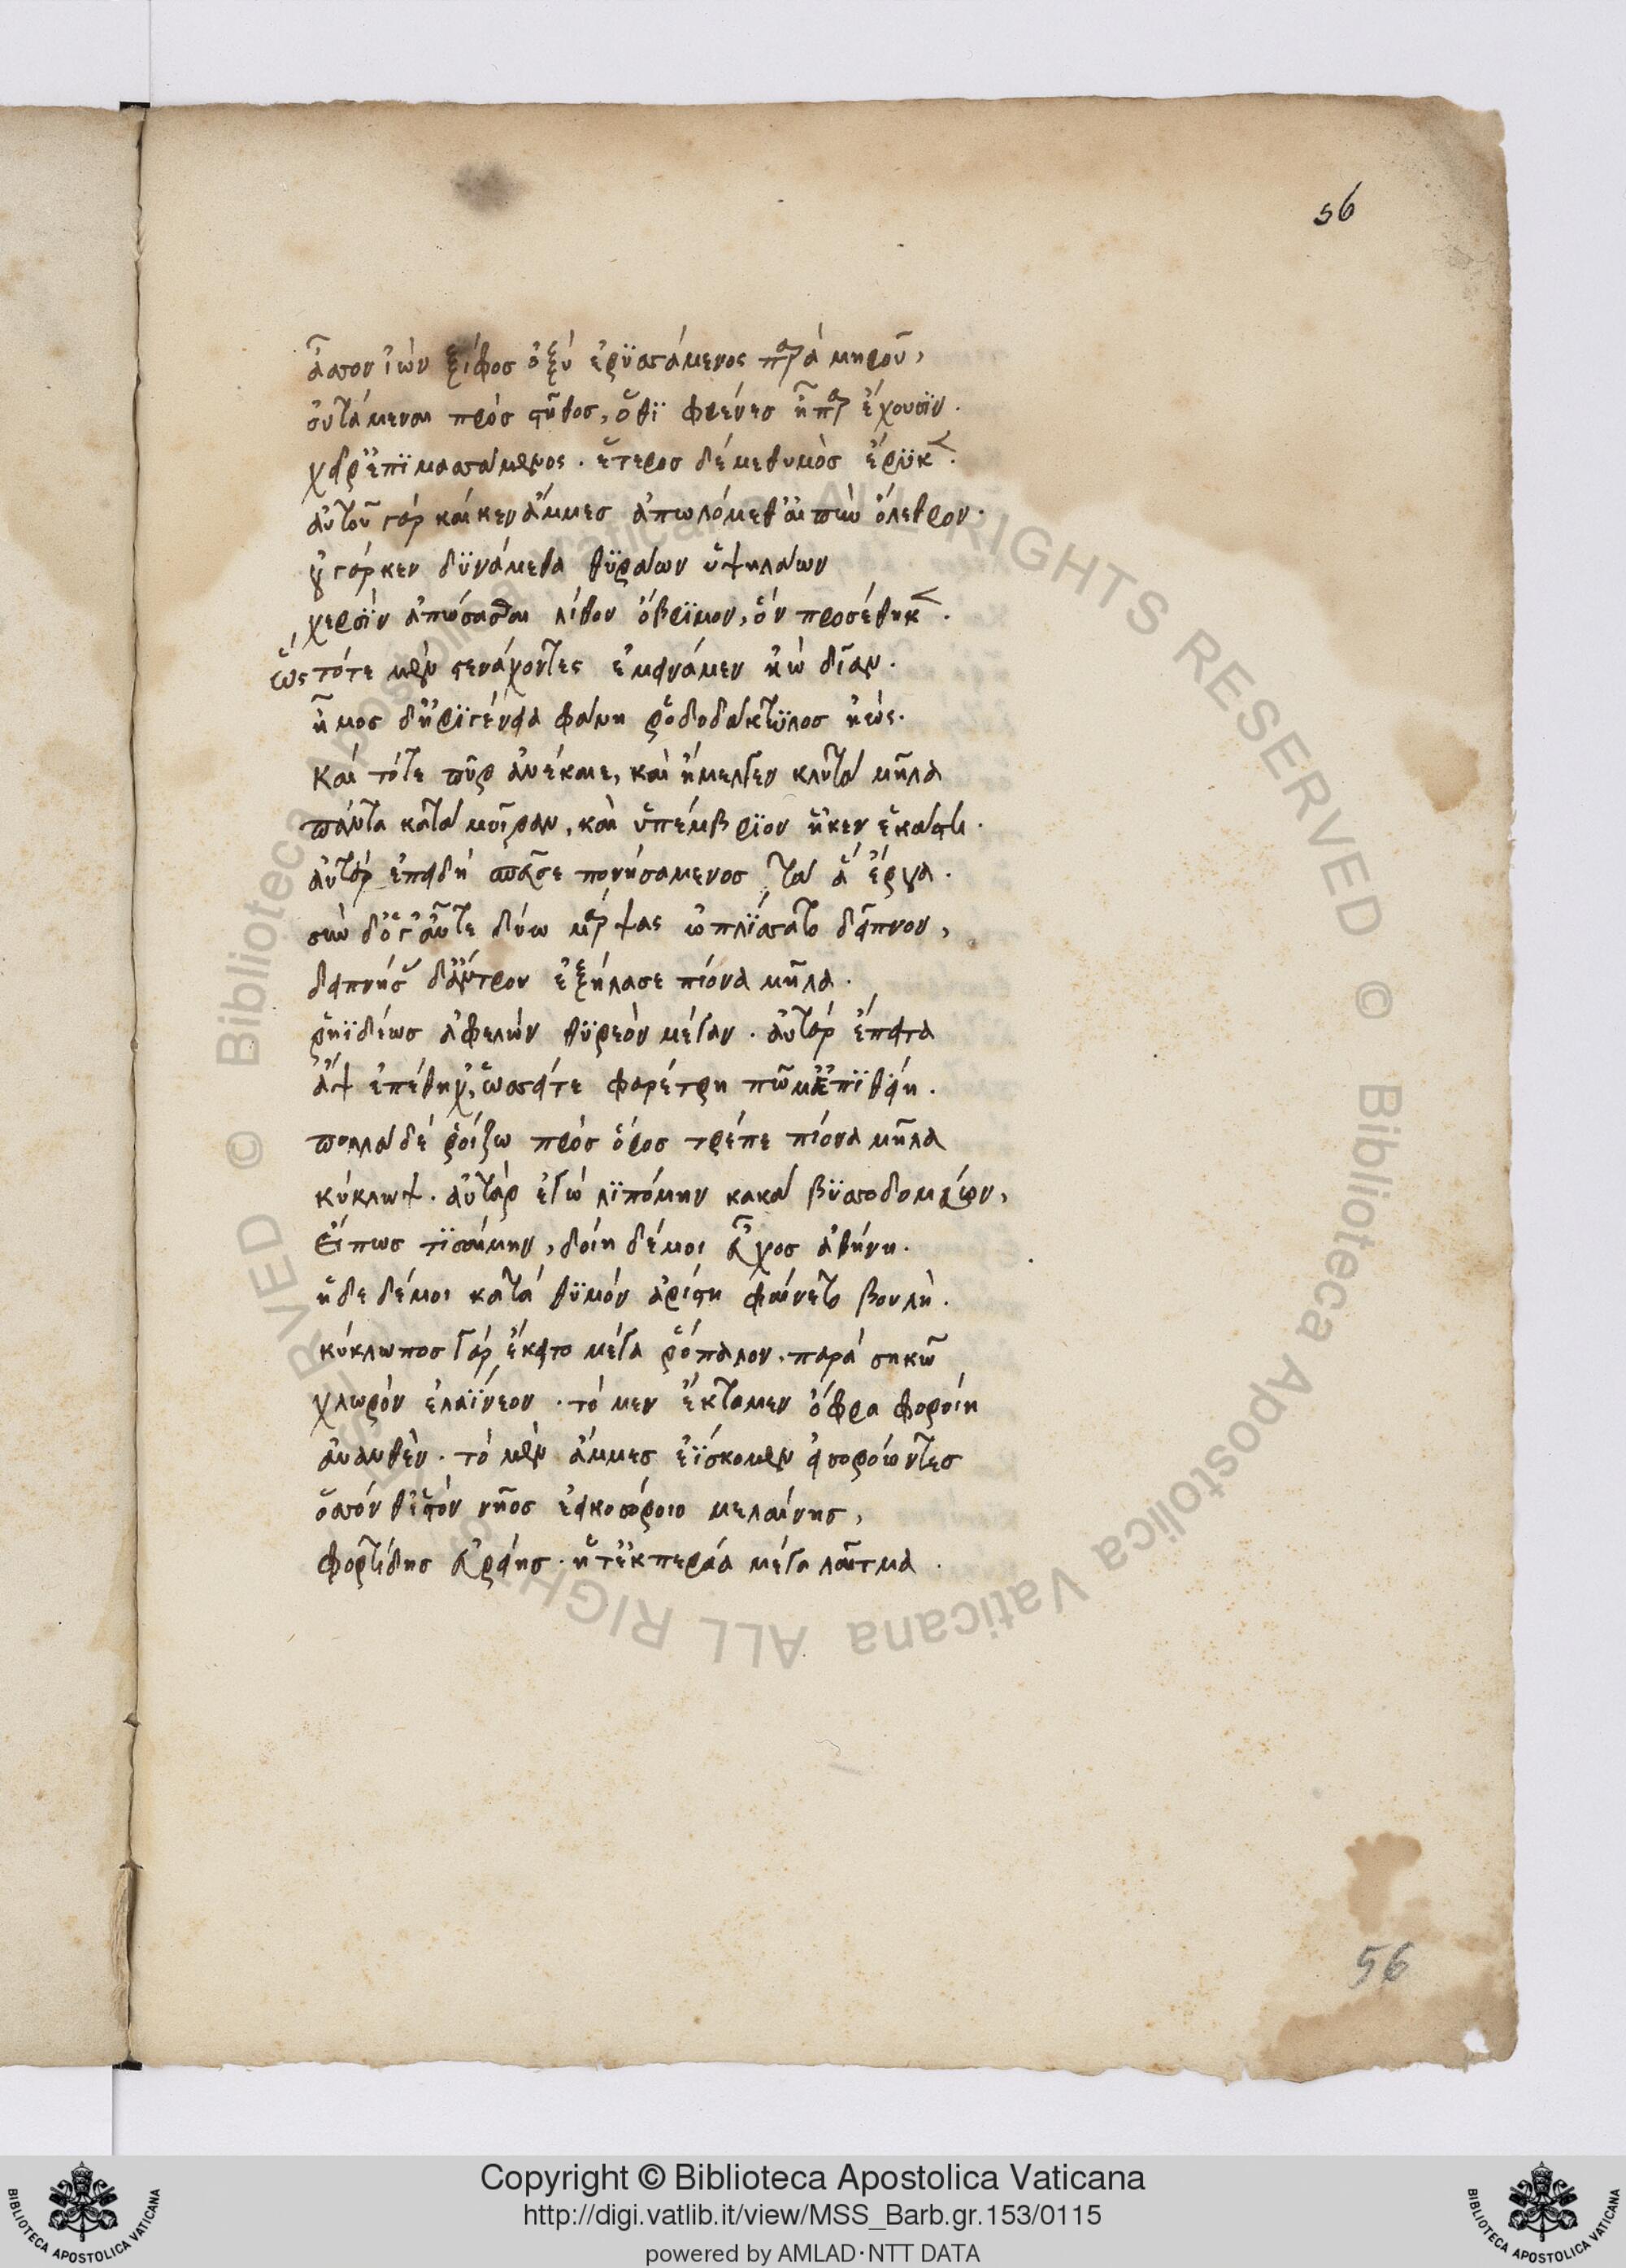 56
ἆσσον ἰὼν ξίφος ὀξὺ ἐρϋσσάμενος παρὰ μηροῦ,
οὐτάμεναι πρὸς στῆθος, ὅθϊ φρένες ἧπαρ ἔχουσϊν.
χεὶρ ἐπϊμασσάμενος. ἕτερος δέ με θυμὸς ἔρϋκε.
αὐτοῦ γάρ καί κεν ἄμμες ἀπωλόμεθ αἰπὺν ὄλεθρον.
οὐ γάρ κεν δϋνάμεθα θϋράων ὑψηλάων
χερσϊν ἀπώσασθαι λίθον ὄβρϊμον, ὃν προσέθηκε.
ὣς τότε μὲν στενάχοντες ἐμείναμεν ἠῶ δῖαν.
ἦμος δ' ἠρϊγένεια φάνη ῥοδοδάκτϋλος ἠώς.
καὶ τότε πῦρ ἀνέκαιε, καὶ ἤμελγεν κλυτὰ μῆλα
πάντα κατὰ μοῖραν, καὶ ὑπ' ἔμβρϊον ἧκεν ἑκάστη.
αὐτὰρ ἐπειδὴ σπεῦσε πονησάμενος τὰ ἃ ἔργα.
σὺν δ' ὅγ' αὖτε δύω μάρψας ὡπλϊσσατο δεῖπνον,
δειπνήσας δ' ἄντρου ἐξήλασε πίονα μῆλα.
ῥηϊδίως ἀφελὼν θϋρεὸν μέγαν. αὐτὰρ ἔπειτα
ἂψ ἐπέθηχ', ὡσείτε φαρέτρη πῶμ' ἐπϊθείη.
πολλὰ δὲ ῥοίζω πρὸς ὄρος τρέπε πίονα μῆλα
κύκλωψ. αὐτὰρ ἐγὼ λϊπόμην κακὰ βϋσσοδομεύων,
εἴ πως τϊσαίμην, δοίη δέ μοι εὖχος ἀθήνη.
ἥδε δέ μοι κατὰ θϋμὸν ἀρίστη φαίνετο βουλὴ.
κύκλωπος γὰρ ἔκειτο μέγα ῥόπαλον παρὰ σηκῶ
χλωρὸν ἐλαϊνεον. τὸ μεν ἔκταμεν ὄφρα φοροίη
αὐανθὲν. τὸ μὲν ἄμμες ἐΐσκομεν εἰσορόωντες
ὅσσόν θ' ἱστὸν νηὸς ἐεικοσόροιο μελαίνης,
φορτίδης εὐρείης. ἥτ' ἐκπεράα μέγα λαῖτμα.
56
Copyright © Biblioteca Apostolica Vaticana
http://digi.vatlib.it/view/MSS_Barb.gr.153/0115
powered by AMLAD·NTT DATA